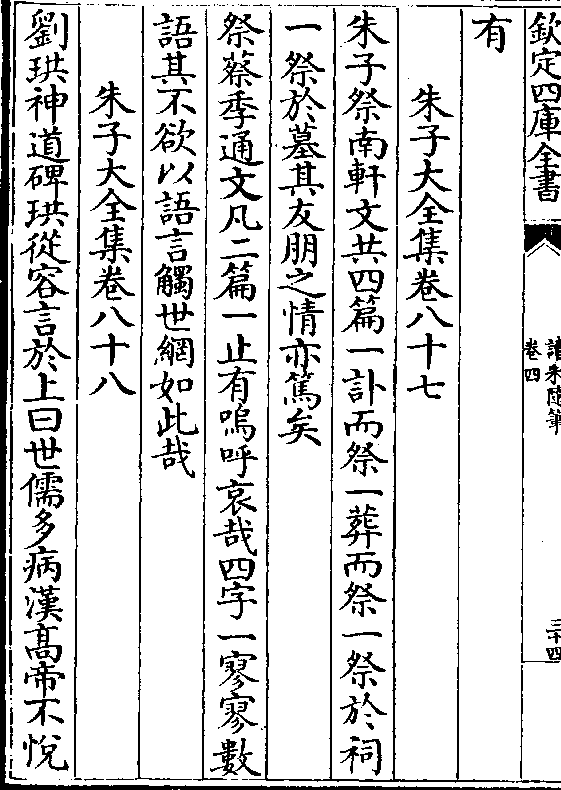 欽定四庫全書
讀朱隨筆
卷四
三十四
有
朱子大全集卷八十七
朱子祭南軒文共四篇一訃而祭一葬而祭一祭於祠
一祭於墓其友朋之情亦篤矣
祭蔡季通文凡二篇一止有嗚呼哀哉四字一寥寥數
語其不欲以語言觸世網如此哉
朱子大全集卷八十八
劉珙神道碑珙從容言於上曰世儒多病漢髙帝不悅